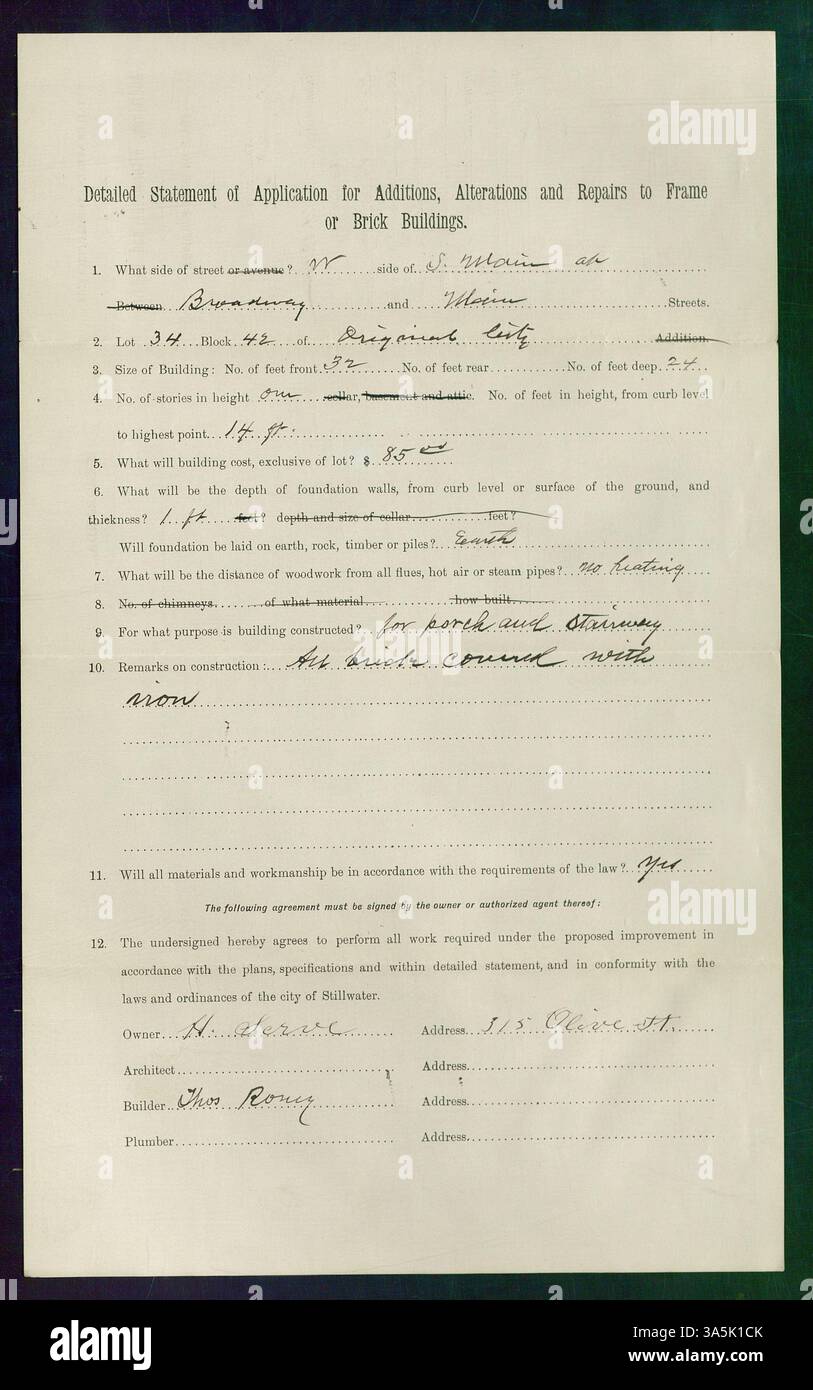 Detailed Statement of Application for Additions, Alterations and Repairs to Frame
or Brick Buildings.
1. What side of street or avenue? W side of S. Main at
Between Broadway and Main Streets.
2. Lot 34 Block 42 of Original City Addition.
3. Size of Building: No. of feet front 32 No. of feet rear No. of feet deep 24
4. No. of stories in height one cellar, basement and attic. No. of feet in height, from curb level
to highest point 14 ft.
5. What will building cost, exclusive of lot? $ 85 00
6. What will be the depth of foundation walls, from curb level or surface of the ground, and
thickness? 1 ft feet? depth and size of cellar feet?
Will foundation be laid on earth, rock, timber or piles? Earth
7. What will be the distance of woodwork from all flues, hot air or steam pipes? no heating
8. No. of chimneys of what material how built
9. For what purpose is building constructed? for porch and stairway
10. Remarks on construction: All brick covered with
iron
11. Will all materials and workmanship be in accordance with the requirements of the law? Yes
The following agreement must be signed by the owner or authorized agent thereof:
12. The undersigned hereby agrees to perform all work required under the proposed improvement in
accordance with the plans, specifications and within detailed statement, and in conformity with the
laws and ordinances of the city of Stillwater.
Owner H. Serve Address 315 Olive St.
Architect Address
Builder Thos Roney Address
Plumber Address
alamy
alamy
Image ID: 3A5K1CK
www.alamy.com